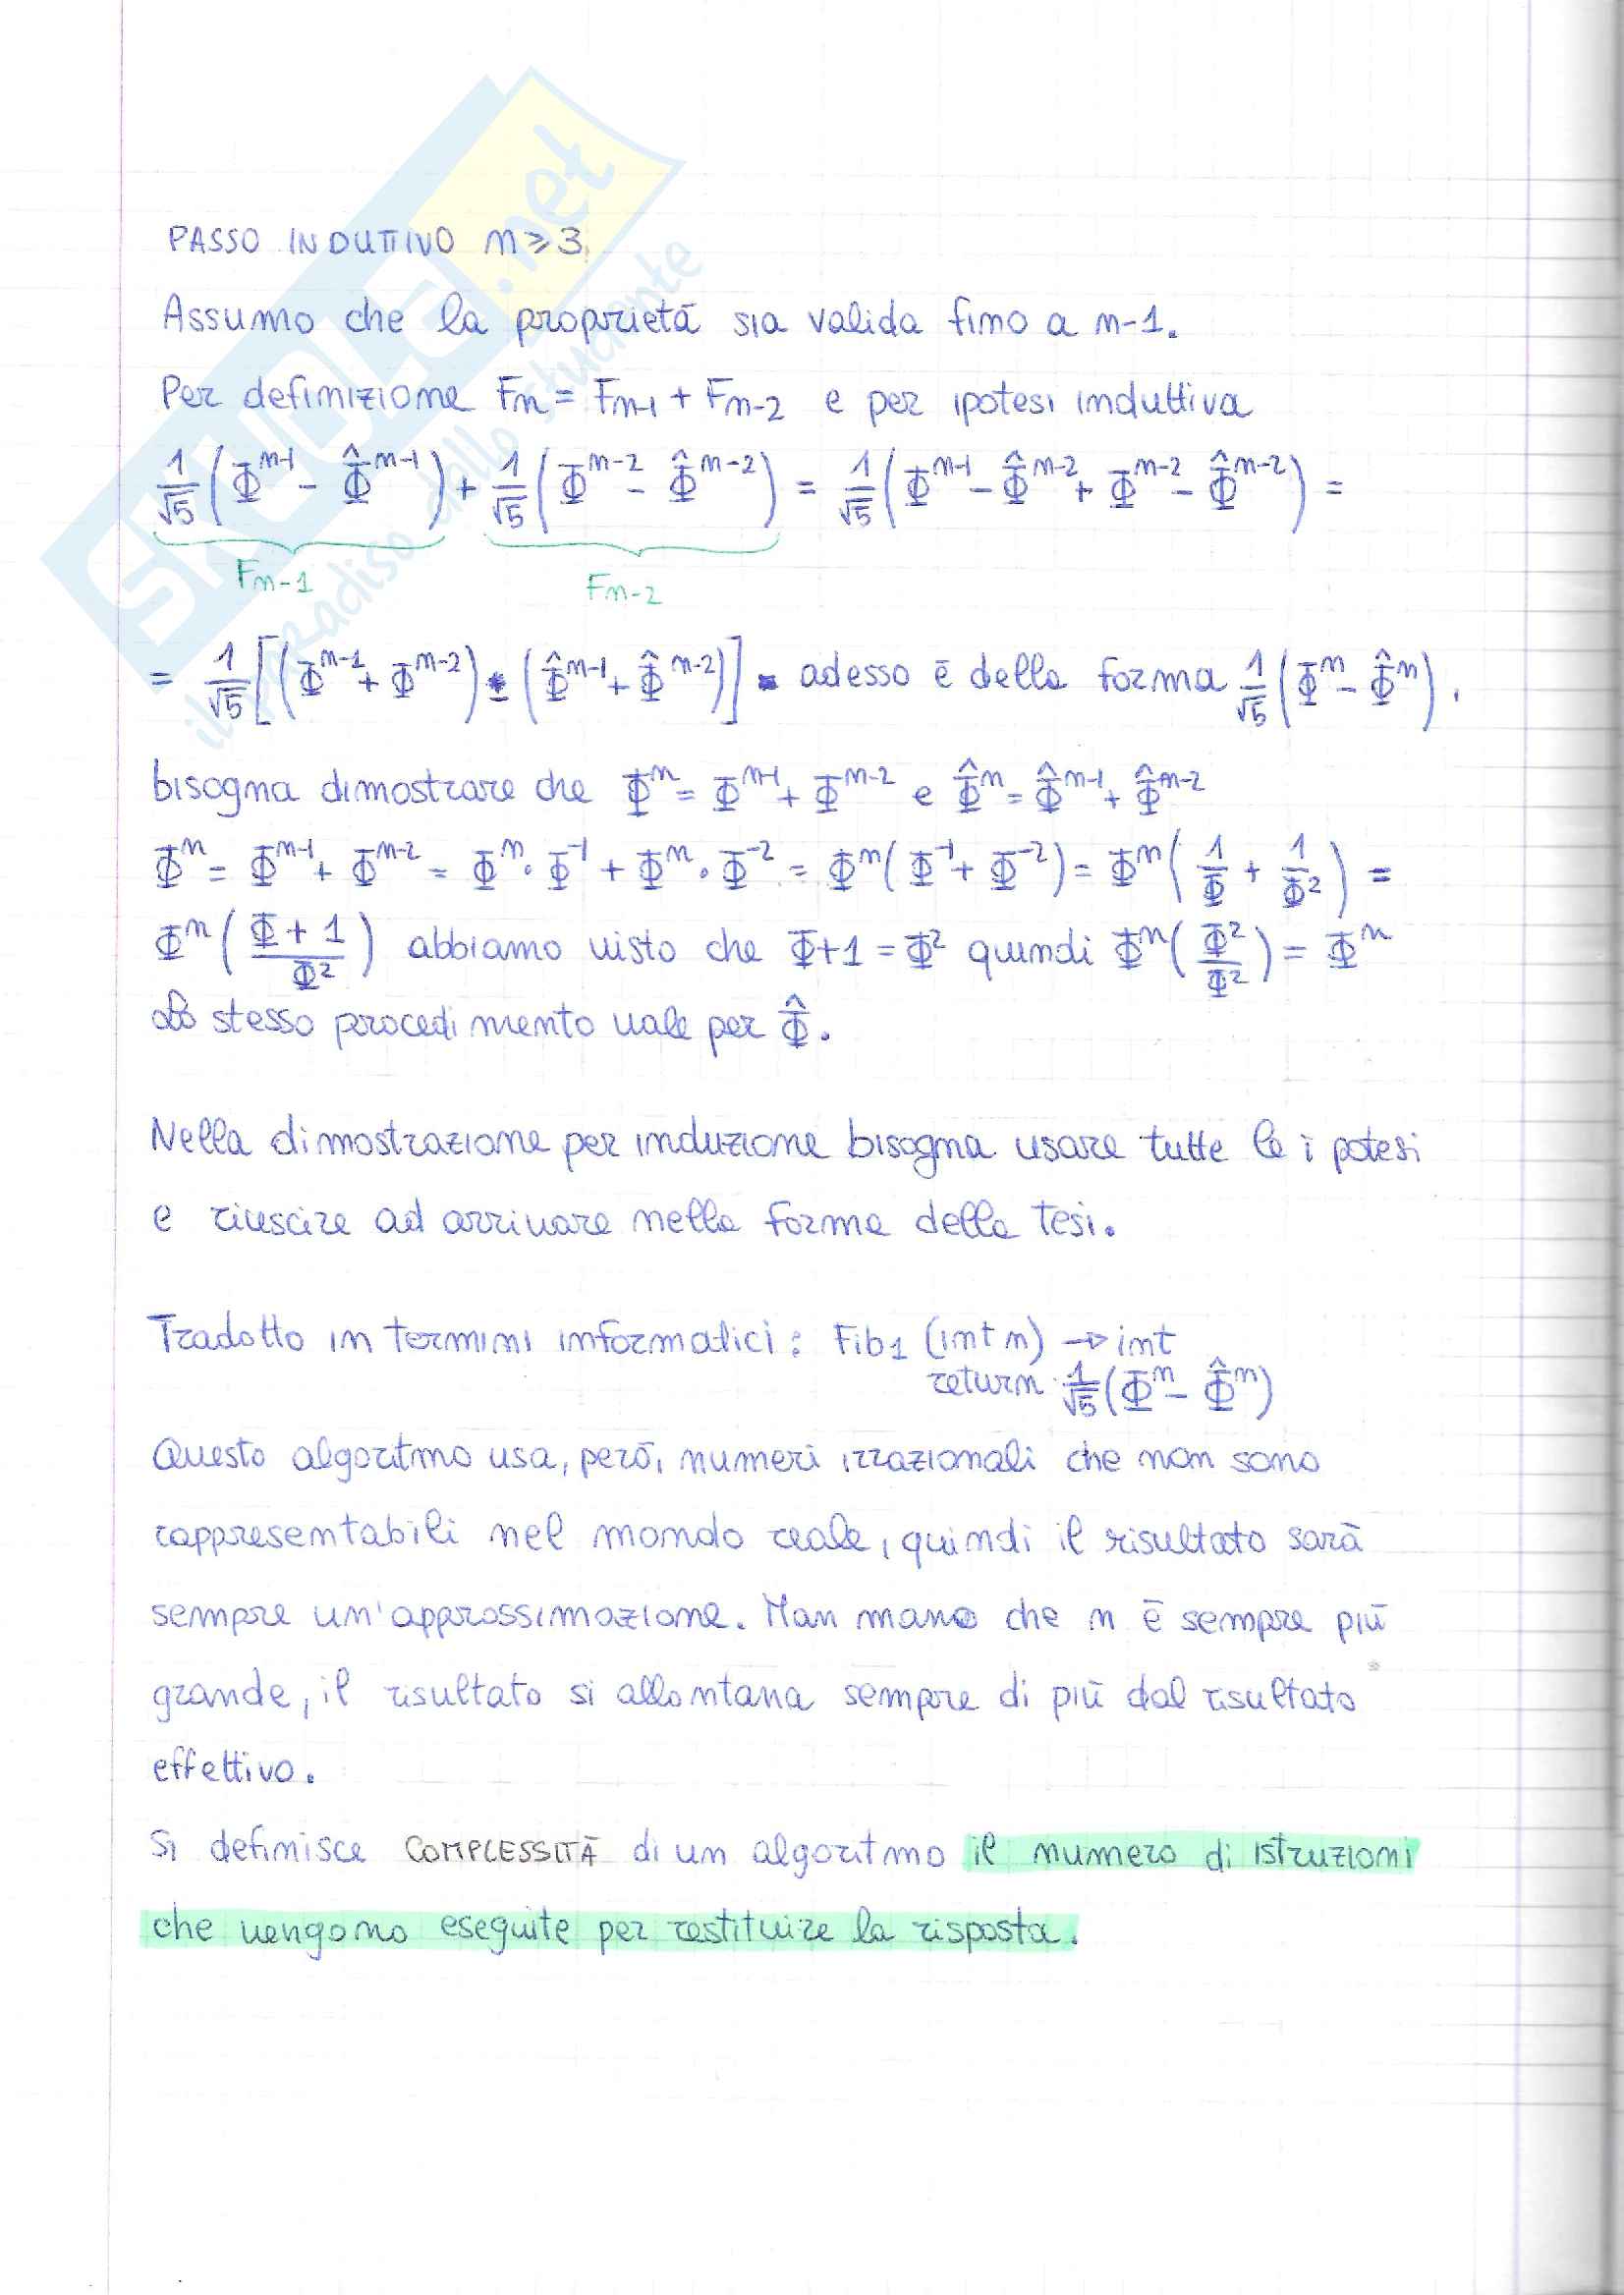 SKUOLA.net
il paradiso dello studente
PASSO INDUTTIVO n ≥ 3
Assumo che la proprietà sia valida fino a n-1.
Per definizione Fn = Fn-1 + Fn-2 e per ipotesi induttiva
1/√5 (Φ^n-1 - Φ̂^n-1) + 1/√5 (Φ^n-2 - Φ̂^n-2) = 1/√5 (Φ^n-1 - Φ̂^n-2 + Φ^n-2 - Φ̂^n-2) =
Fn-1 Fn-2
= 1/√5 [(Φ^n-1 + Φ^n-2) - (Φ̂^n-1 + Φ̂^n-2)] adesso è della forma 1/√5 (Φ^n - Φ̂^n).
bisogna dimostrare che Φ^n = Φ^n-1 + Φ^n-2 e Φ̂^n = Φ̂^n-1 + Φ̂^n-2
Φ^n = Φ^n-1 + Φ^n-2 = Φ^n · Φ^-1 + Φ^n · Φ^-2 = Φ^n (Φ^-1 + Φ^-2) = Φ^n (1/Φ + 1/Φ^2) =
Φ^n ((Φ+1)/Φ^2) abbiamo visto che Φ+1 = Φ^2 quindi Φ^n (Φ^2/Φ^2) = Φ^n
Lo stesso procedimento vale per Φ̂.
Nella dimostrazione per induzione bisogna usare tutte le ipotesi
e riuscire ad arrivare nella forma della tesi.
Tradotto in termini informatici: Fib1 (int n) → int
return 1/√5 (Φ^n - Φ̂^n)
Questo algoritmo usa, però, numeri irrazionali che non sono
rappresentabili nel mondo reale, quindi il risultato sarà
sempre un'approssimazione. Man mano che n è sempre più
grande, il risultato si allontana sempre di più dal risultato
effettivo.
Si definisce COMPLESSITÀ di un algoritmo il numero di istruzioni
che vengono eseguite per restituire la risposta.